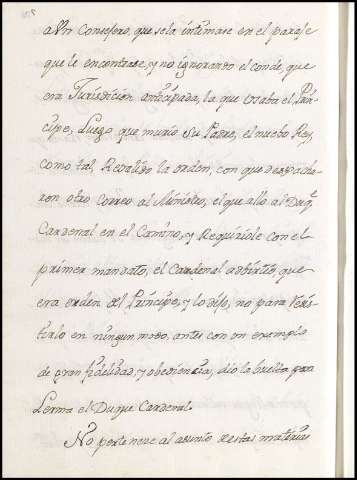 a Vn Consejero, que sela intimase en el paraje
que le encontrase, y no ignorando el conde, que
era Jurisdicion anticipada, la que vsaba el Prin-
cipe, Luego que murio su Padre, el nuebo Rey,
como tal, Revalido la orden, con que despacha-
ron otro Correo al Ministro, el que allo al Duq.e
Cardenal en el Camino, y Requiriole con el
primer mandato, el Cardenal advirtio, que
era orden del Principe, y lo dijo, no para resis-
tirlo en ningun modo, antes con un exemplo
de gran fidelidad, y obediencia, dio la buelta para
Lerma el Duque Cardenal.
No pertenece al asunto destas materias